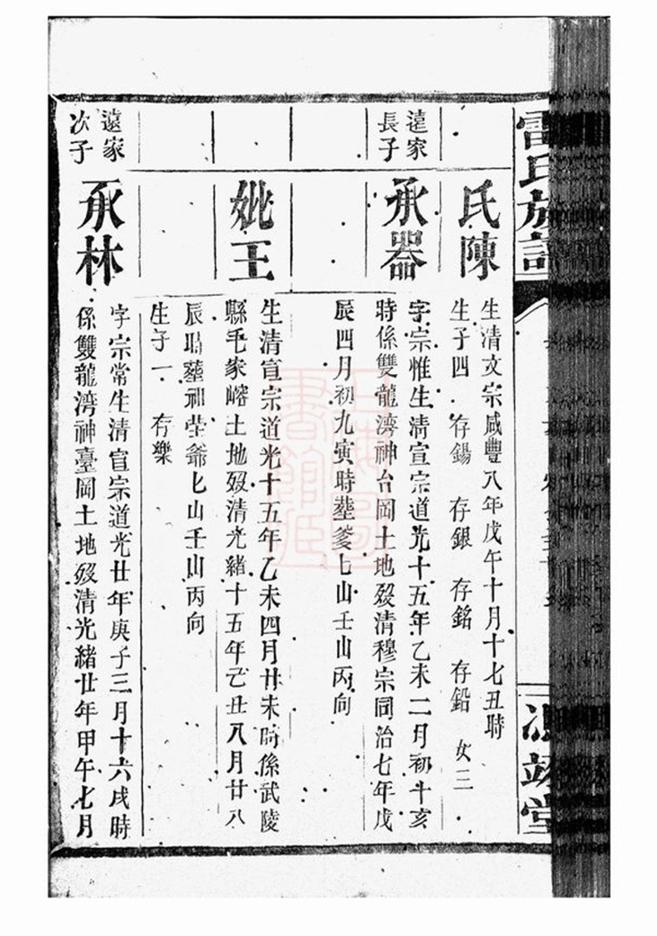 雷氏族譜
馮翊堂
氏陳
生清文宗咸豐八年戊午十月十七丑時
生子四 存錫 存銀 存銘 存鉛 女三
遠家
長子
承器
字宗惟生清宣宗道光十五年乙未二月初十亥
時係雙龍灣神台岡土地歿清穆宗同治七年戊
辰四月初九寅時塟爹七山壬山丙向
妣王
生清宣宗道光十五年乙未四月廿未時係武陵
縣毛家嵱土地歿清光緒十五年己丑八月廿八
辰時塟祖塋爺七山壬山丙向
生子一 存樂
遠家
次子
承林
字宗常生清宣宗道光廿年庚子三月十六戌時
係雙龍灣神臺岡土地歿清光緒廿年甲午七月